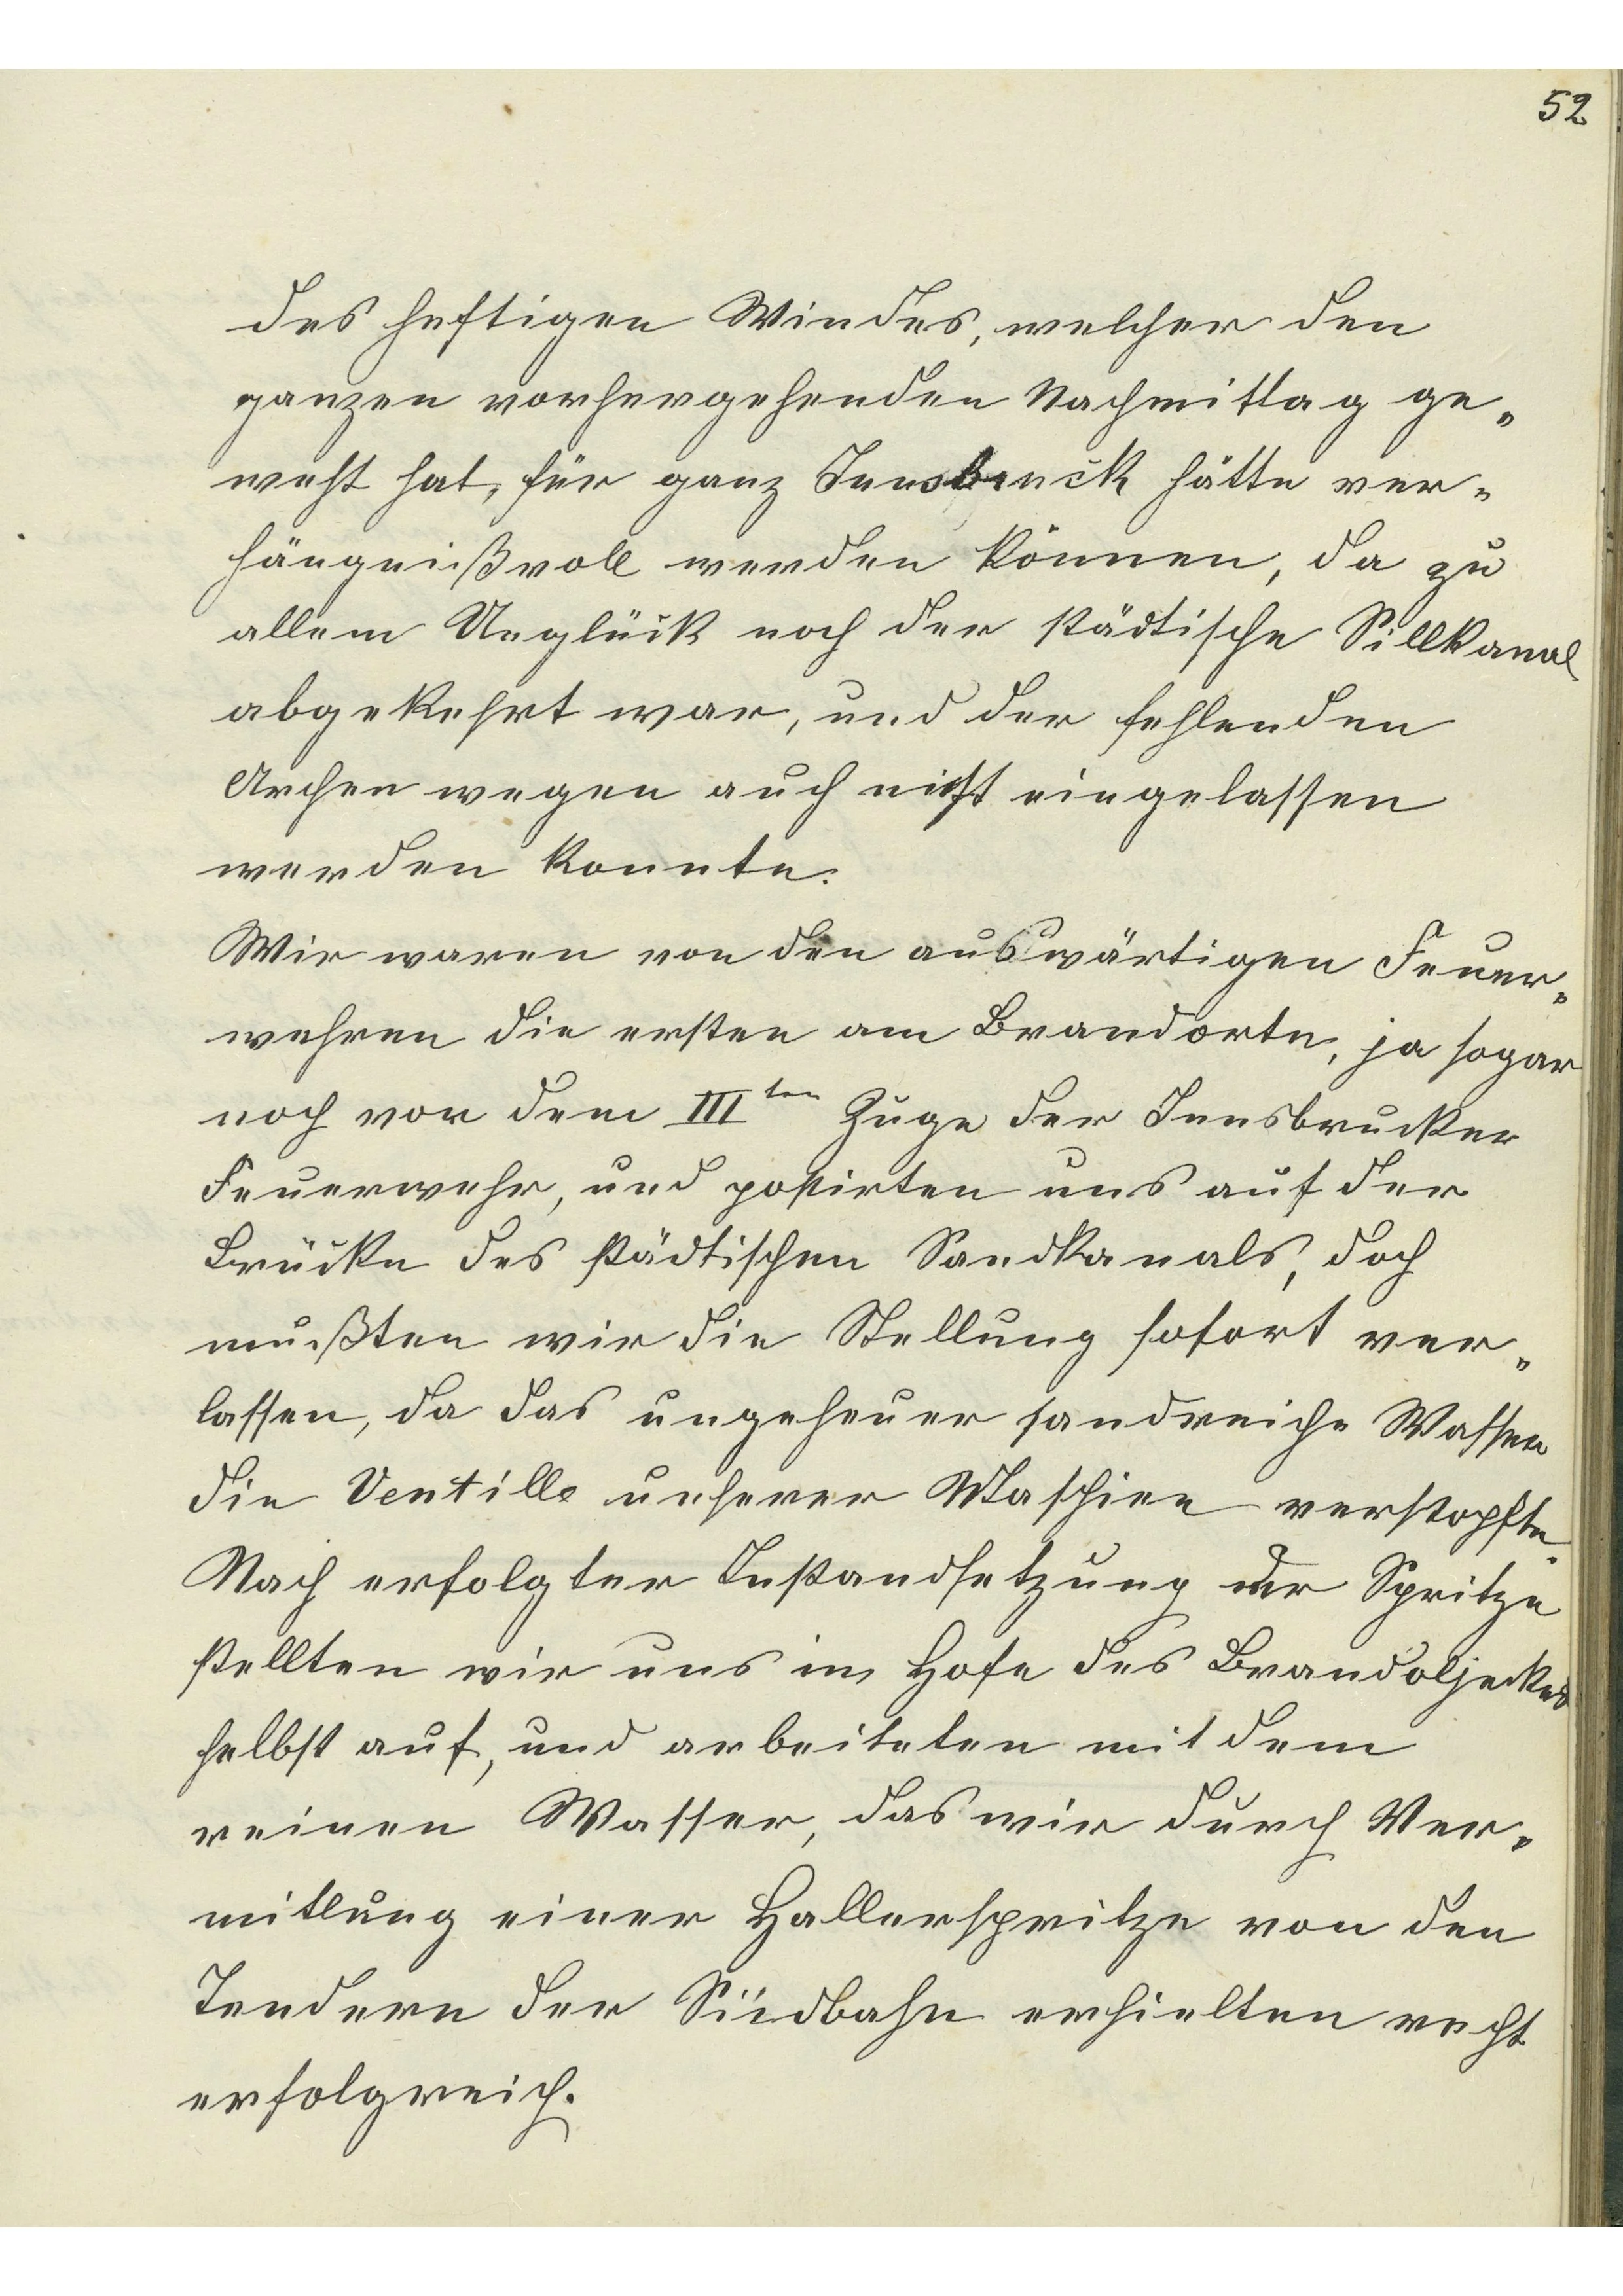 52
des heftigen Windes, welcher den
ganzen vorhergehenden Nachmittag ge-
weht hat, für ganz Innsbruck hätte ver-
hängnißvoll werden können, da zu
allem Unglück noch der städtische Sillkanal
abgekehrt war, und der fehlenden
Archen wegen auch nicht eingelassen
werden konnte.
Wir waren von den auswärtigen Feuer-
wehren die ersten am Brandorte, ja sogar
noch vor dem III ten Zuge der Innsbrucker
Feuerwehr, und postirten uns auf der
Brücke des städtischen Sandkanals, doch
mußten wir die Stellung sofort ver-
lassen, da das ungeheuer sandreiche Wasser
die Ventille unserer Maschine verstopfte.
Nach erfolgter Instandsetzung der Spritze
stellten wir uns im Hofe des Brandobjecktes
selbst auf, und arbeiteten mit dem
reinen Wasser, das wir durch Ver-
mitlung einer Hallerspritze von den
Tendern der Südbahn erhielten recht
erfolgreich.